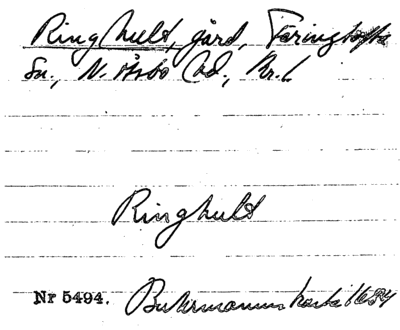 Ringhult, gård, Färingtofta
Sn., N. Åsbo hd., Kr. l.
Ringhult
Nr 5494. Buhrmanns karta 1684